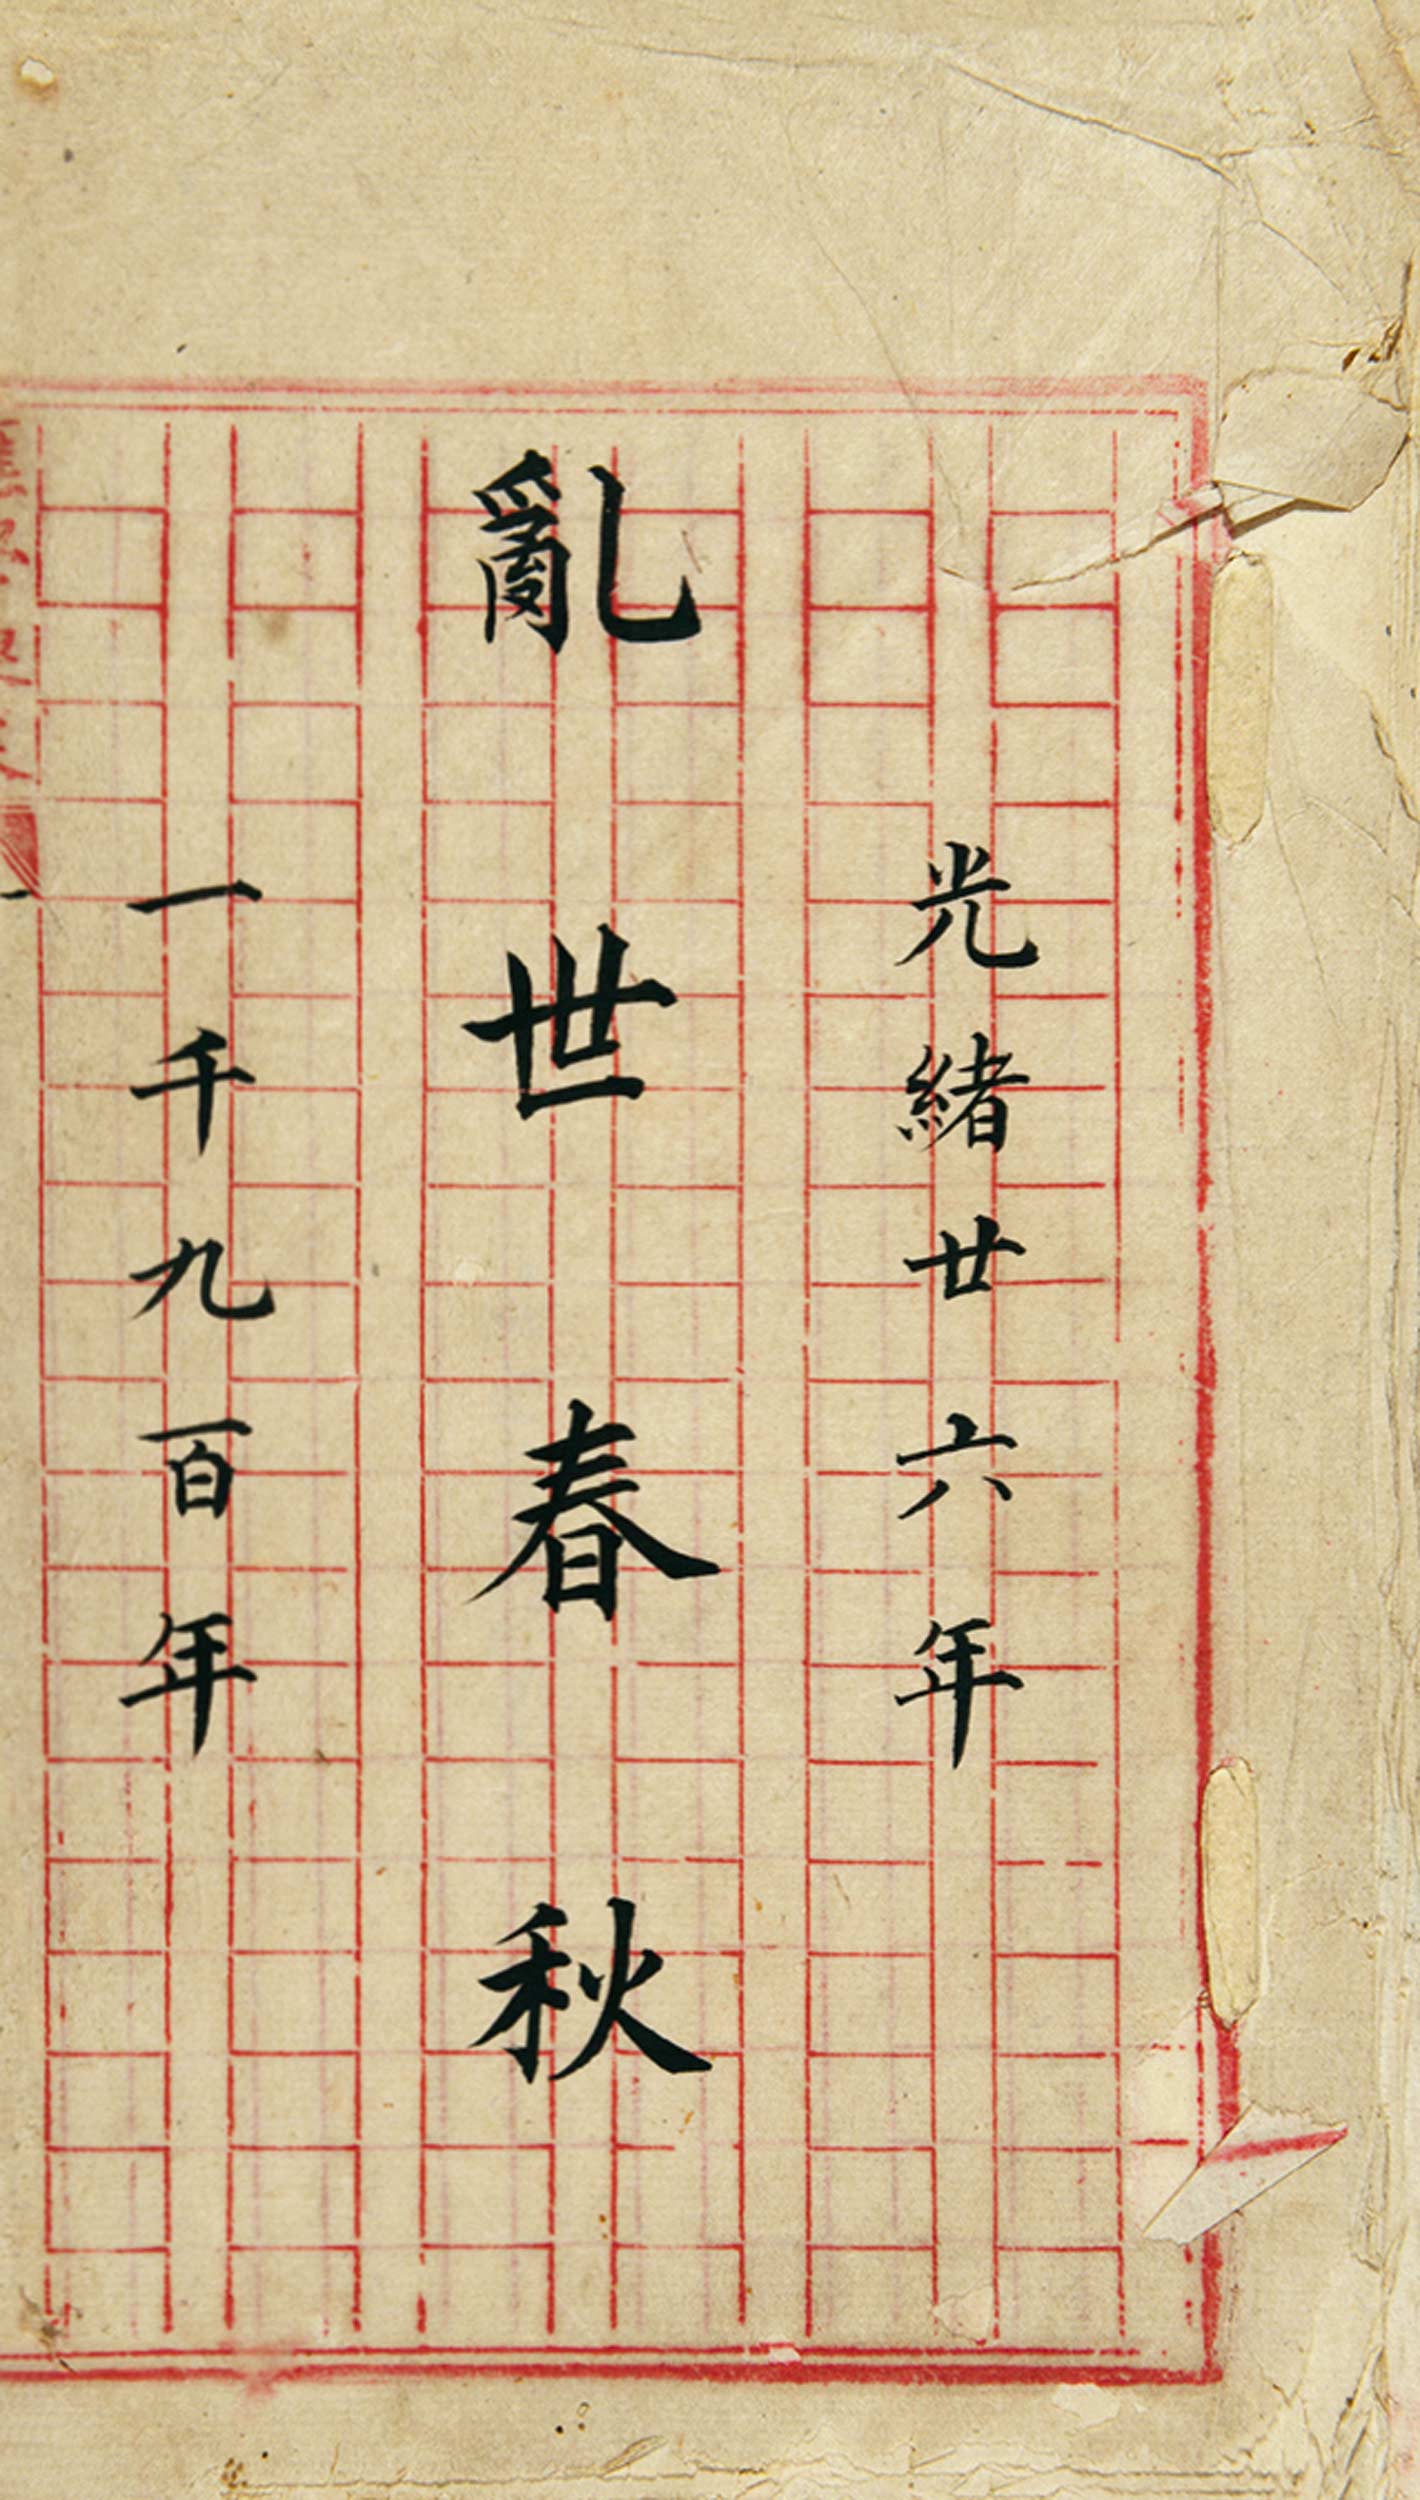 光緒廿六年
亂世春秋
一千九百年